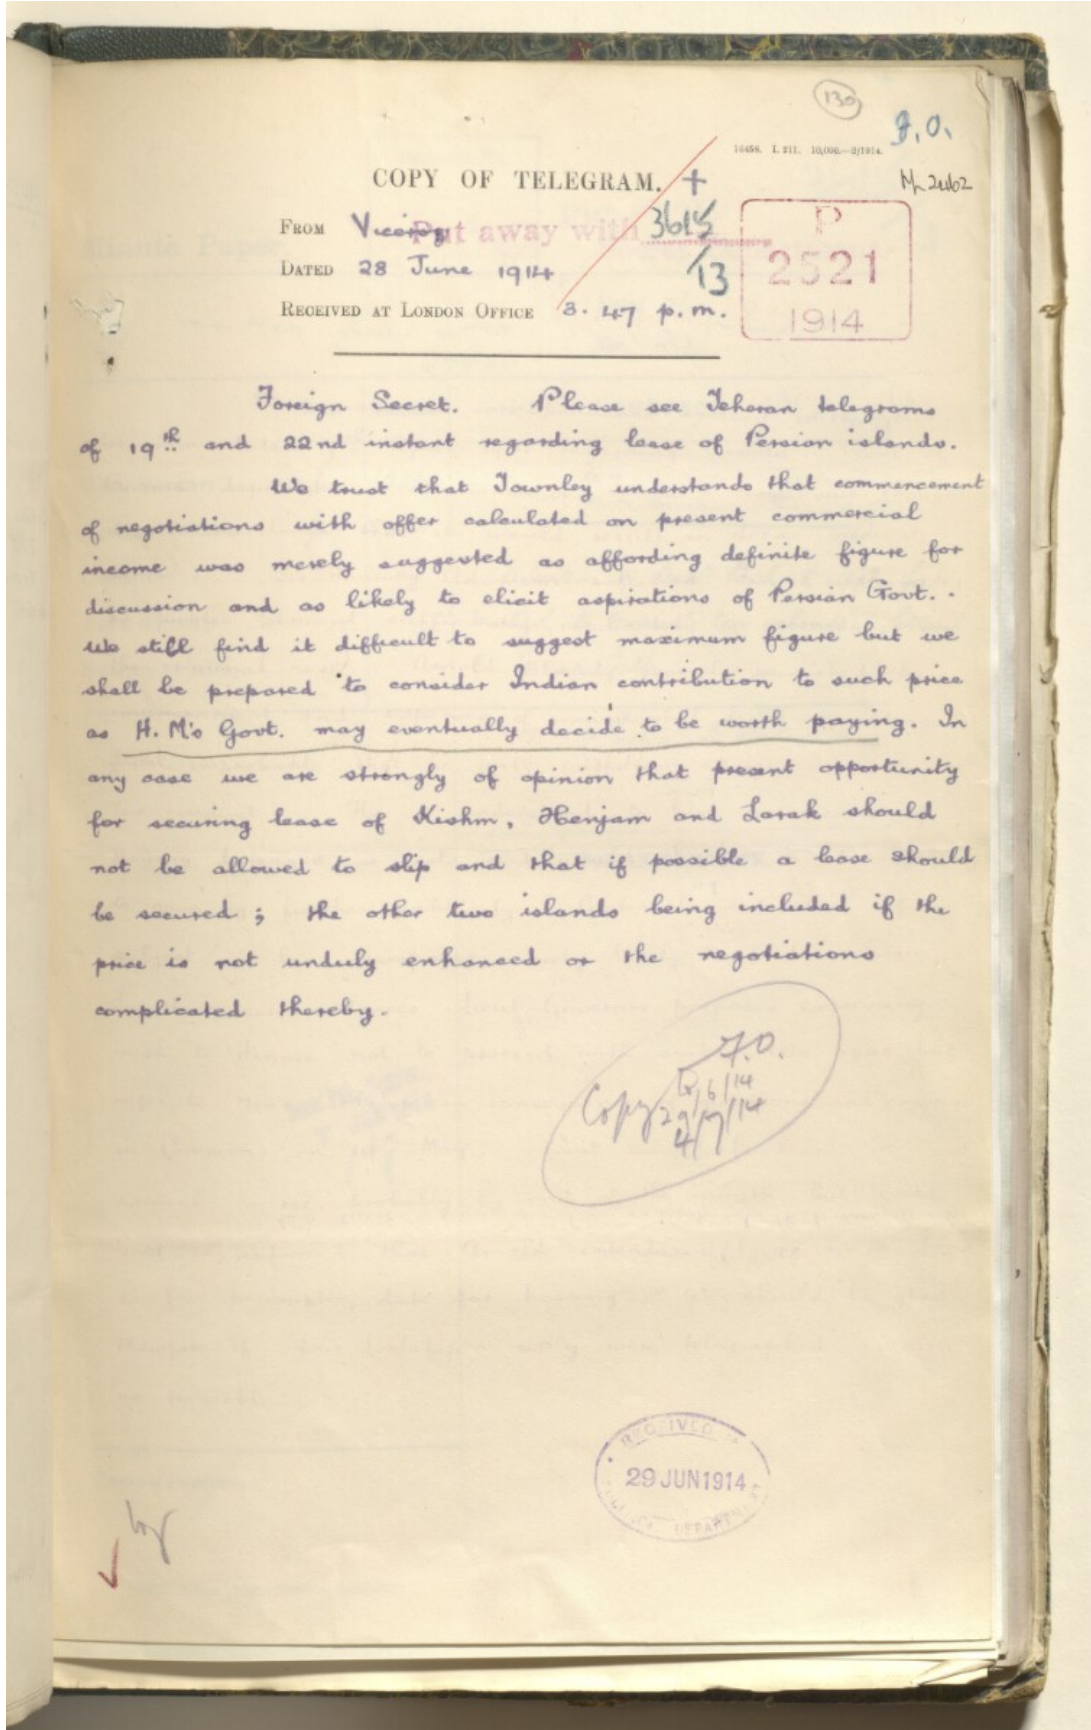 130
F.O.
16458. I. 211. 10,000.—2/1914.
COPY OF TELEGRAM. +
FROM Viceroy
Put away with 3615/13
DATED 28 June 1914
RECEIVED AT LONDON OFFICE 3.47 p.m.
P
2521
1914
Foreign Secret. Please see Teheran telegrams
of 19th and 22nd instant regarding lease of Persian islands.
We trust that Townley understands that commencement
of negotiations with offer calculated on present commercial
income was merely suggested as affording definite figure for
discussion and as likely to elicit aspirations of Persian Govt..
We still find it difficult to suggest maximum figure but we
shall be prepared to consider Indian contribution to such price
as H.M's Govt. may eventually decide to be worth paying. In
any case we are strongly of opinion that present opportunity
for securing lease of Kishm, Henjam and Larak should
not be allowed to slip and that if possible a lease should
be secured; the other two islands being included if the
price is not unduly enhanced or the negotiations
complicated thereby.
F.O.
Copy 29/6/14
4/7/14
RECEIVED
29 JUN 1914
DEPARTMENT